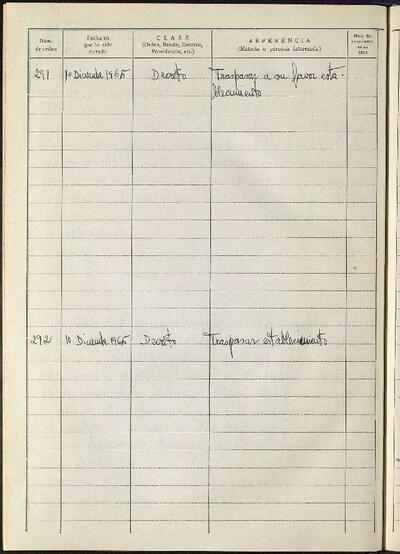 Núm. de orden
Fecha en que ha sido dictado
CLASE
(Orden, Bando, Decreto, Providencia, etc.)
REFERENCIA
(Materia o persona interesada)
291 10 Diciembre 1965 Decreto Traspasar a su favor esta-
blecimiento
292 10 Diciembre 1965 Decreto Traspasar establecimiento